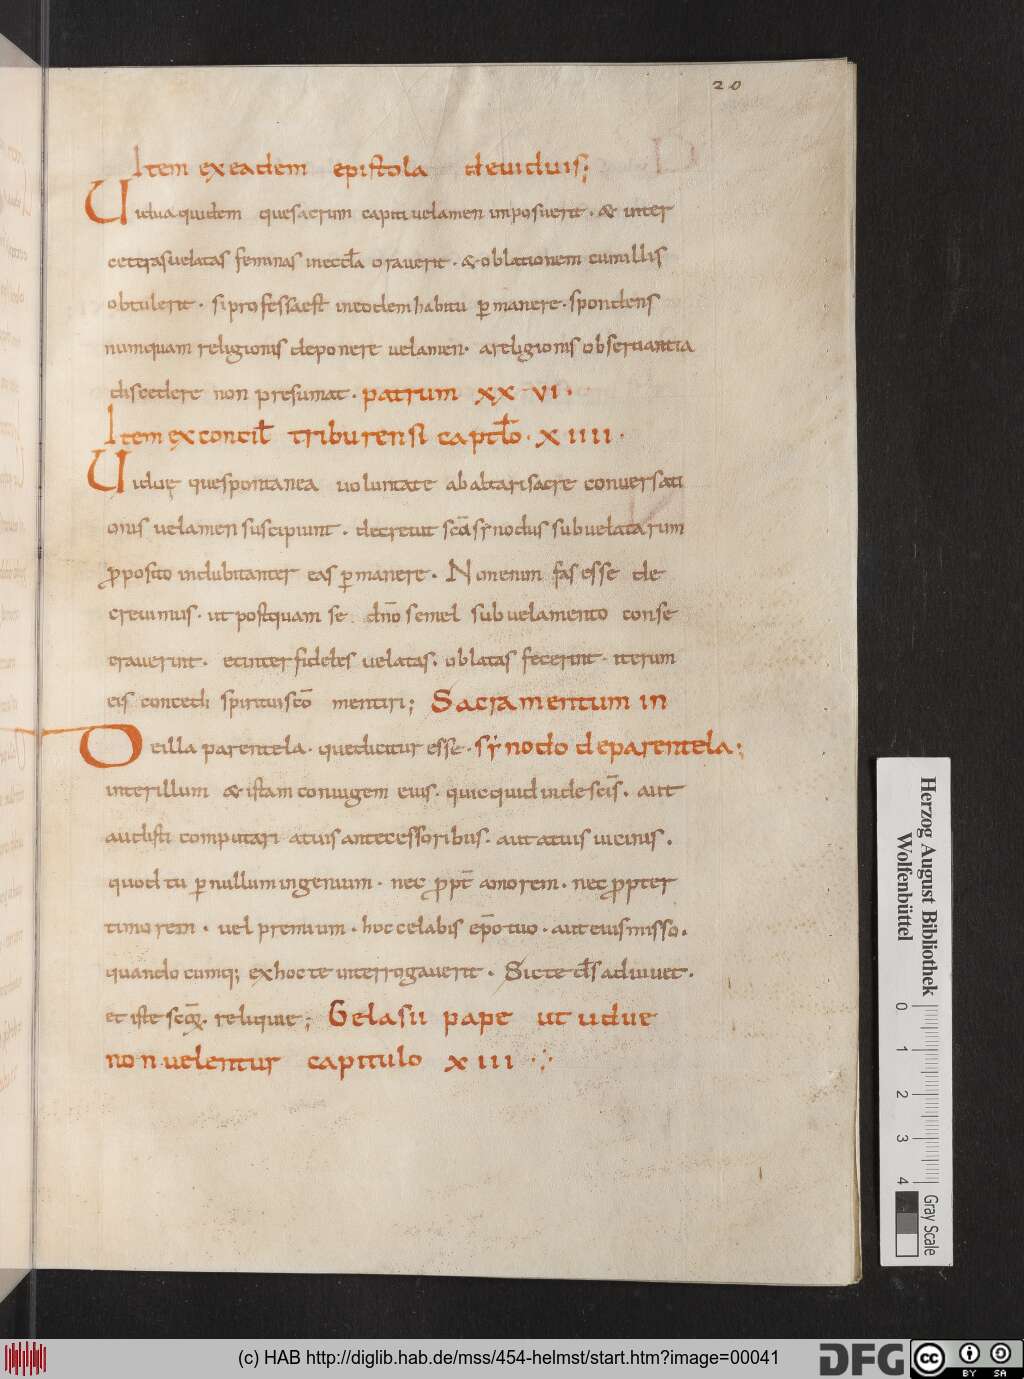 20
Item ex eadem epistola de uiduis;
Uidua quidem que sacrum capiti uelamen imposuerit. & inter
ceteras uelatas feminas in eccła orauerit. & oblationem cum illis
obtulerit. si professa est in eodem habitu ꝑmanere. spondens
numquam religionis deponere uelamen. a religionis obseruantia
discedere non presumat. patrum XXVI.
Item ex concił triburensi captło. XIIII.
Uiduę que spontanea uoluntate ab altari sacre conuersati
onis uelamen suscipiunt. decreuit scā synodus sub uelatarum
ꝓposito indubitanter eas ꝑmanere. Non enim fas esse de
creuimus. ut postquam se dn̄o semel sub uelamento conse
crauerint. et inter fideles uelatas. oblatas fecerint. iterum
eis concedi spiritui scō mentiri; Sacramentum in
De illa parentela. que dicitur esse. synodo de parentela;
inter illum & istam coniugem eius. quicquid inde scis̄. aut
audisti computari a tuis antecessoribus. aut a tuis uicinis.
quod tu ꝑ nullum ingenium. nec ꝓpt̄ amorem. nec ꝓpter
timorem. uel premium. hoc celabis ep̄o tuo. aut eius misso.
quandocumq; ex hoc te interrogauerit. Sic te d̄s adiuuet.
et iste scōꝝ. reliquie; Gelasii pape ut uidue
non uelentur capitulo XIII
Herzog August Bibliothek
Wolfenbüttel
0 1 2 3 4
Gray Scale
(c) HAB http://diglib.hab.de/mss/454-helmst/start.htm?image=00041
DFG
cc BY SA